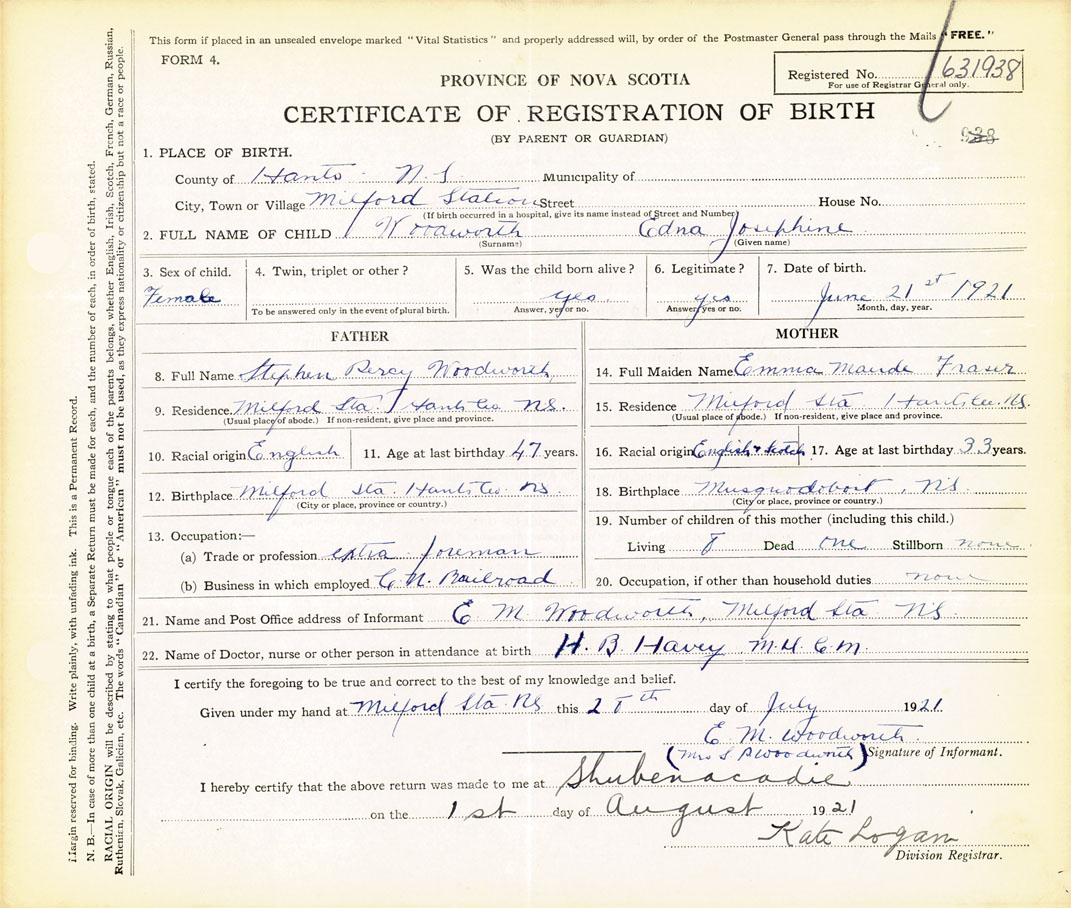 This form if placed in an unsealed envelope marked "Vital Statistics" and properly addressed will, by order of the Postmaster General pass through the Mails "FREE."
FORM 4.
Registered No. 631938
For use of Registrar General only.
PROVINCE OF NOVA SCOTIA
CERTIFICATE OF REGISTRATION OF BIRTH
(BY PARENT OR GUARDIAN)
938
1. PLACE OF BIRTH.
County of Hants N.S Municipality of
City, Town or Village Milford Station Street House No.
(If birth occurred in a hospital, give its name instead of Street and Number)
2. FULL NAME OF CHILD Woodworth Edna Josephine
(Surname) (Given name)
3. Sex of child. 4. Twin, triplet or other? 5. Was the child born alive? 6. Legitimate? 7. Date of birth.
Female yes yes June 21st 1921
To be answered only in the event of plural birth. Answer, yes or no. Answer, yes or no. Month, day, year.
FATHER
8. Full Name Stephen Percy Woodworth
9. Residence. Milford Sta Hants Co NS.
(Usual place of abode.) If non-resident, give place and province.
10. Racial origin English 11. Age at last birthday 47 years.
12. Birthplace Milford Sta. Hants Co NS
(City or place, province or country.)
13. Occupation:—
(a) Trade or profession extra foreman
(b) Business in which employed C. N. Railroad
MOTHER
14. Full Maiden Name Emma Maude Fraser
15. Residence Milford Sta Hants Co. NS.
(Usual place of abode.) If non-resident, give place and province.
16. Racial origin English & Scotch 17. Age at last birthday 33 years.
18. Birthplace Musquodoboit, NS
(City or place, province or country.)
19. Number of children of this mother (including this child.)
Living 8 Dead one Stillborn none
20. Occupation, if other than household duties none
21. Name and Post Office address of Informant E M Woodworth, Milford Sta NS
22. Name of Doctor, nurse or other person in attendance at birth H. B. Havey M.D. C.M.
I certify the foregoing to be true and correct to the best of my knowledge and belief.
Given under my hand at Milford Sta. NS this 28th day of July 1921
E. M. Woodworth
(Mrs S P Woodworth) Signature of Informant.
I hereby certify that the above return was made to me at Shubenacadie
on the 1st day of August 1921
Kate Logan
Division Registrar.
Margin reserved for binding. Write plainly, with unfading ink. This is a Permanent Record.
N. B.—In case of more than one child at a birth, a Separate Return must be made for each, and the number of each, in order of birth, stated.
RACIAL ORIGIN will be described by stating to what people or tongue each of the parents belongs, whether English, Irish, Scotch, French, German, Russian,
Ruthenian, Slovak, Galician, etc. The words "Canadian" or "American" must not be used, as they express nationality or citizenship but not a race or people.